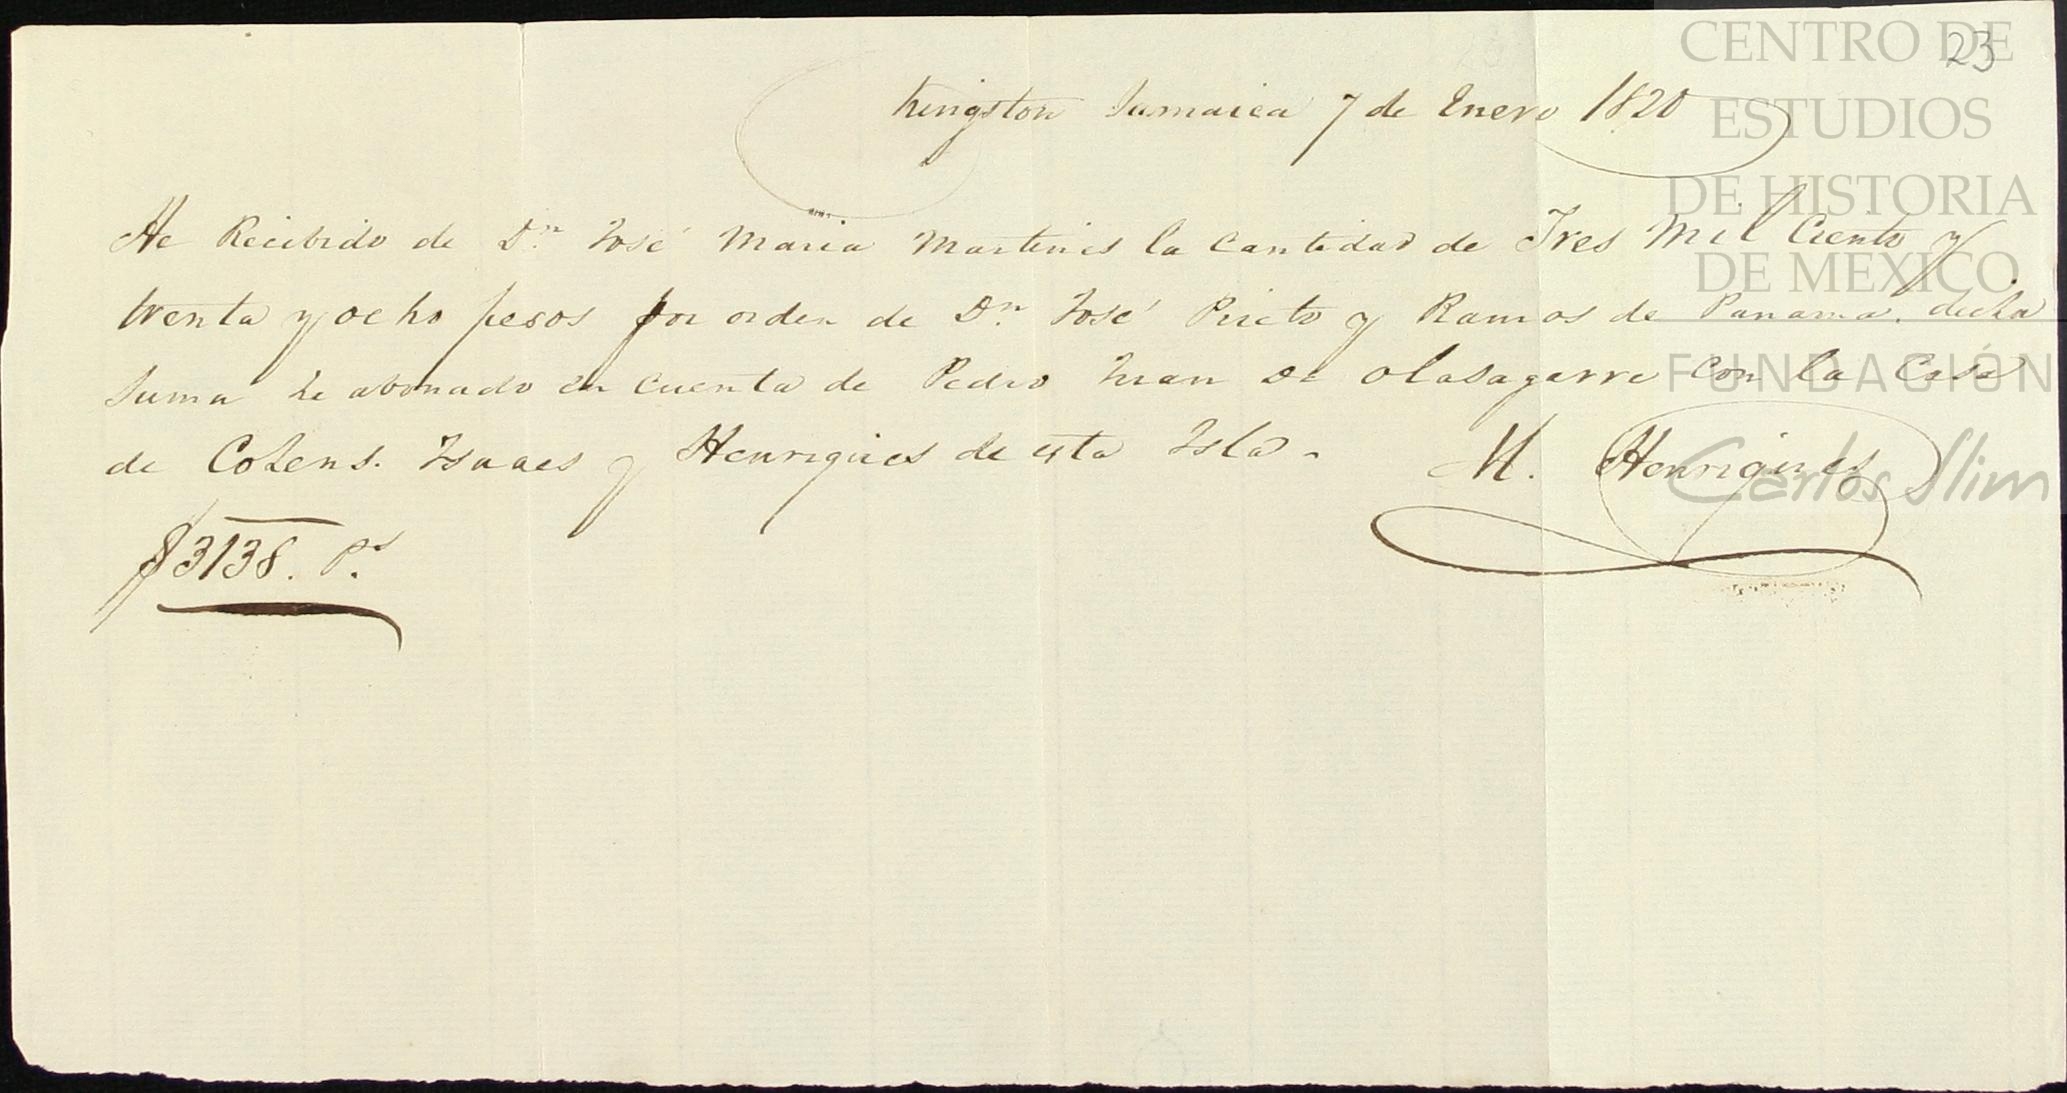 23
Kingston Jamaica 7 de Enero 1820
He Recibido de Dn. José Maria Martines la Cantidad de Tres Mil Ciento y
trenta y ocho pesos por orden de Dn. José Pieeto y Ramos de Panama. dicha
Suma he abonado en Cuenta de Pedro Juan De Olasagarre Con la Casa
de Cohens. Isaacs y Henriques de esta Isla.
M. Henriques
$3138. Ps.
CENTRO DE
ESTUDIOS
DE HISTORIA
DE MEXICO
FUNDACIÓN
Carlos Slim